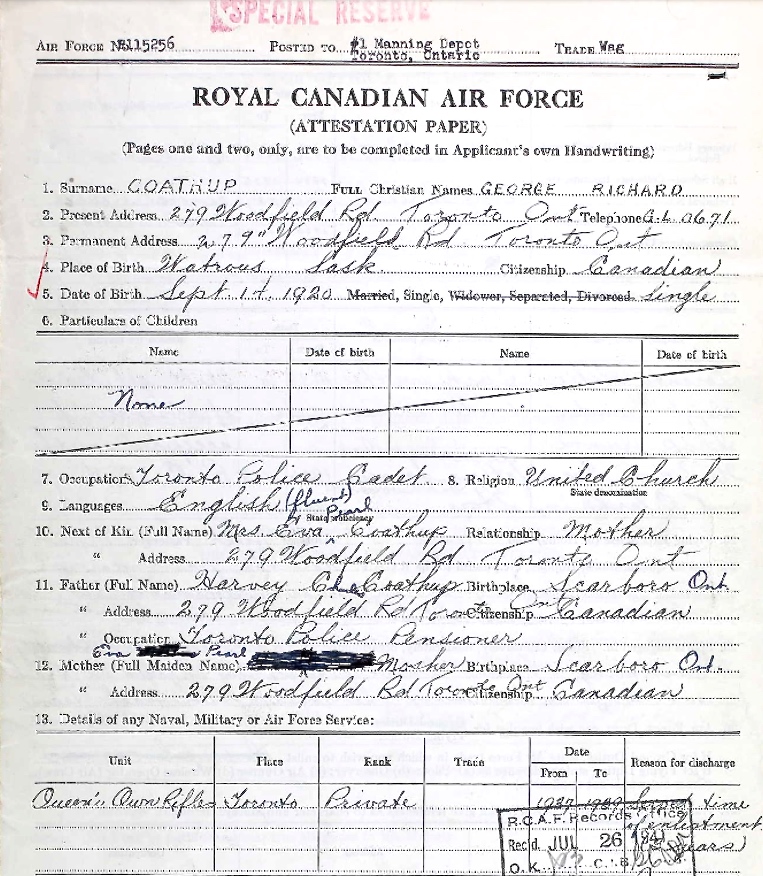 SPECIAL RESERVE
AIR FORCE No R115256 POSTED TO #1 Manning Depot Toronto, Ontario TRADE Wag
ROYAL CANADIAN AIR FORCE
(ATTESTATION PAPER)
(Pages one and two, only, are to be completed in Applicant's own Handwriting)
1. Surname COATHUP FULL Christian Names GEORGE RICHARD
2. Present Address 279 Woodfield Rd Toronto Ont Telephone G.L. 0671
3. Permanent Address 279 Woodfield Rd Toronto Ont
4. Place of Birth Watrous Sask Citizenship Canadian
5. Date of Birth Sept 14 1920 Married, Single, Widower, Separated, Divorced. Single
6. Particulars of Children
Name Date of birth Name Date of birth
None
7. Occupation Toronto Police Cadet 8. Religion United Church
State denomination
9. Languages English (fluent)
State proficiency
10. Next of Kin (Full Name) Mrs. Eva Pearl Coathup Relationship Mother
" Address 279 Woodfield Rd Toronto Ont
11. Father (Full Name) Harvey Coathup Birthplace Scarboro Ont
" Address 279 Woodfield Rd Toronto Ont Citizenship Canadian
" Occupation Toronto Police Pensioner
12. Mother (Full Maiden Name) Eva Pearl Mosher Birthplace Scarboro Ont.
" Address 279 Woodfield Rd Toronto Ont Citizenship Canadian
13. Details of any Naval, Military or Air Force Service:
Unit Place Rank Train Date From To Reason for discharge
Queen's Own Rifles Toronto Private 1937 1939 Served time
of enlistment
years)
R.C.A.F. Records Office
Rec'd. JUL 26 1941
O.K. C.I.B.